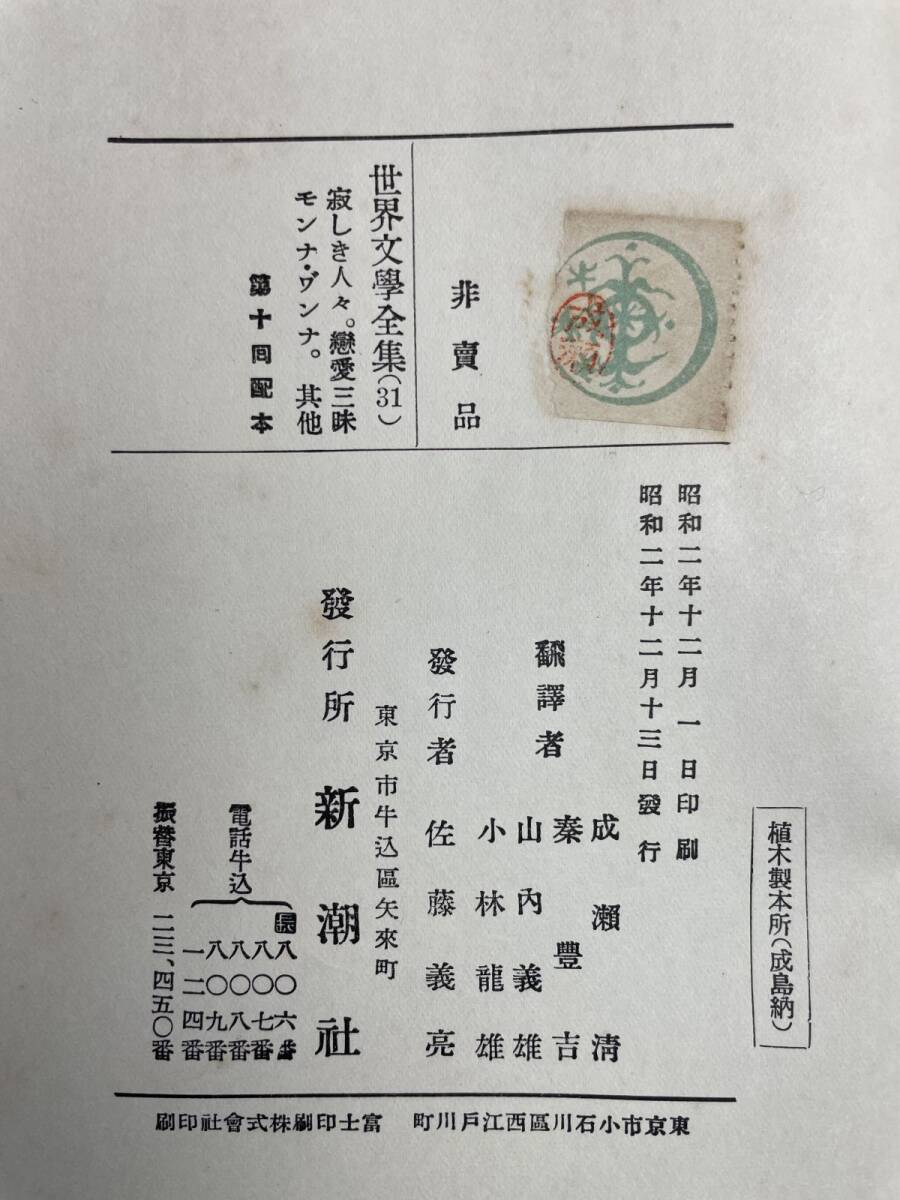 非賣品
世界文學全集(31)
寂しき人々。戀愛三昧
モンナ・ヴンナ。其他
第十回配本
昭和二年十二月一日印刷
昭和二年十二月十三日發行
翻譯者
成瀨淸
秦豐吉
山內義雄
小林龍雄
發行者 佐藤義亮
東京市牛込區矢來町
發行所 新潮社
電話牛込
長八〇六番
八〇七番
八〇八番
八〇九番
一二四番
振替東京 二三、四五〇番
植木製本所(成島納)
東京市小石川區西江戶川町 富士印刷株式會社印刷